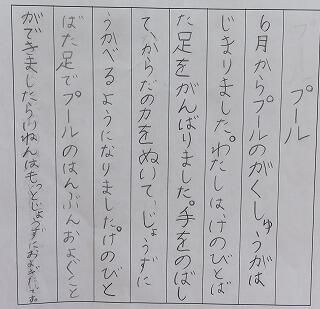 プール
6月からプールのがくしゅうがは
じまりました。わたしは、けのびとば
た足をがんばりました。手をのばし
て、からだの力をぬいて、じょうずに
うかべるようになりました。けのびと
ばた足でプールのはんぶんおよぐこと
ができました。らいねんはもっとじょうずにおよぎたいです。